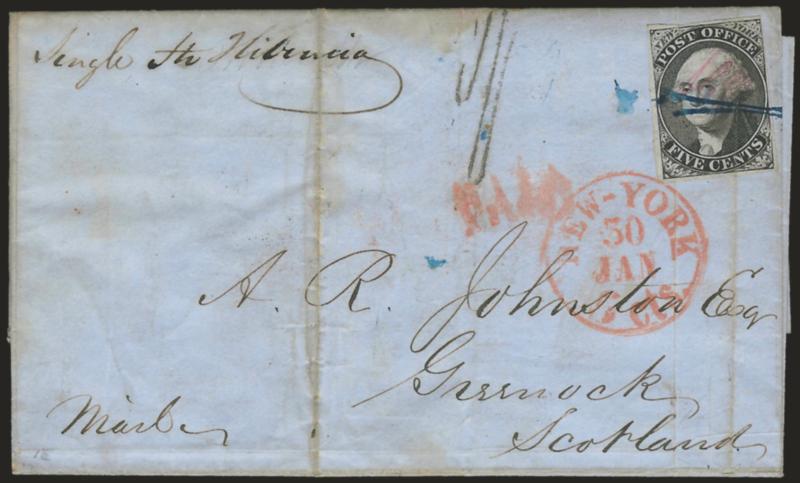 Single pr Hibernia
POST OFFICE
FIVE CENTS
PAID
NEW-YORK
30
JAN
5 cts
A. R. Johnston Esq
Greenock
Scotland